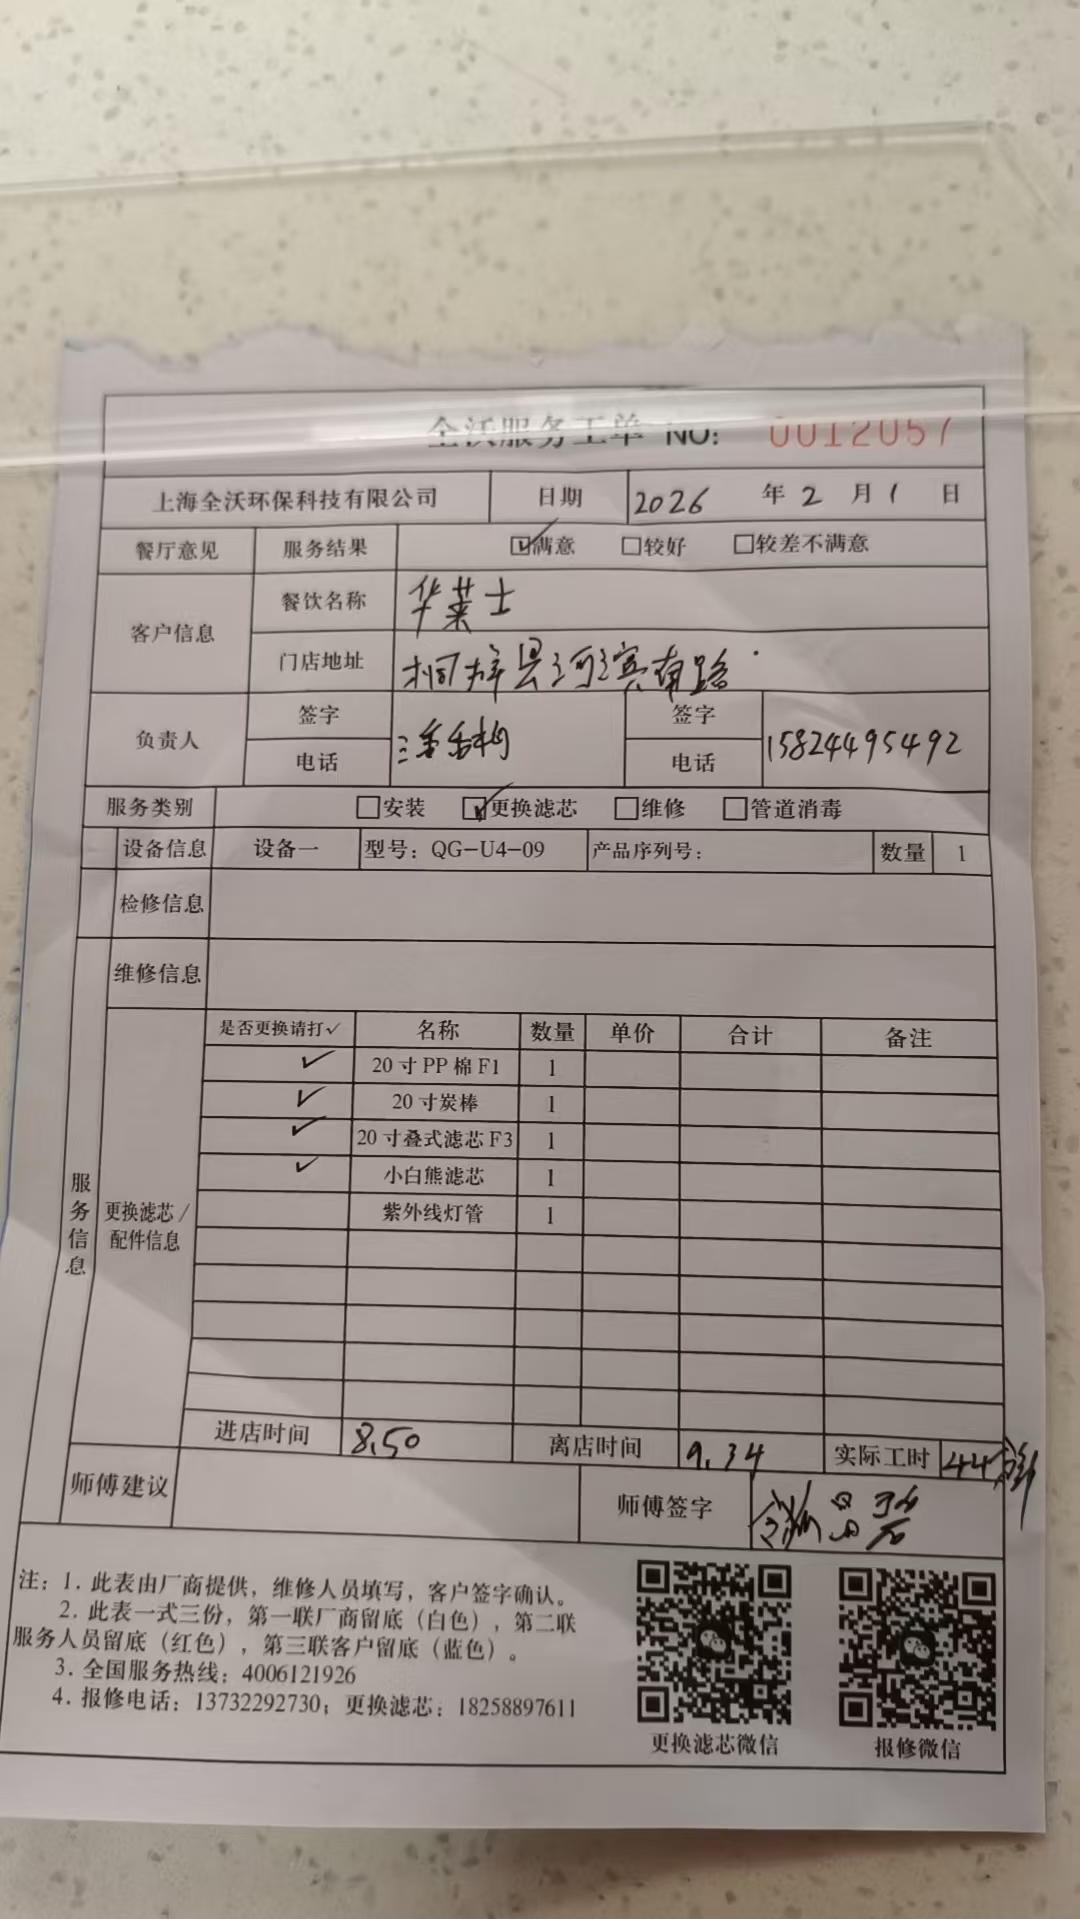 全沃服务工单 NO: 0012057
上海全沃环保科技有限公司 日期 2026 年 2 月 1 日
餐厅意见 服务结果 ☑满意 □较好 □较差不满意
客户信息 餐饮名称 华莱士
门店地址 桐梓县河滨南路
负责人 签字 签字
电话 电话 15824495492
服务类别 □安装 ☑更换滤芯 □维修 □管道消毒
设备信息 设备一 型号：QG-U4-09 产品序列号： 数量 1
检修信息
维修信息
是否更换请打✓ 名称 数量 单价 合计 备注
✓ 20寸PP棉F1 1
✓ 20寸炭棒 1
✓ 20寸叠式滤芯F3 1
✓ 小白熊滤芯 1
紫外线灯管 1
服务信息
更换滤芯/
配件信息
进店时间 8.50 离店时间 9.34 实际工时 44分
师傅建议 师傅签字
注：1. 此表由厂商提供，维修人员填写，客户签字确认。
2. 此表一式三份，第一联厂商留底（白色），第二联
服务人员留底（红色），第三联客户留底（蓝色）。
3. 全国服务热线：4006121926
4. 报修电话：13732292730；更换滤芯：18258897611
更换滤芯微信 报修微信